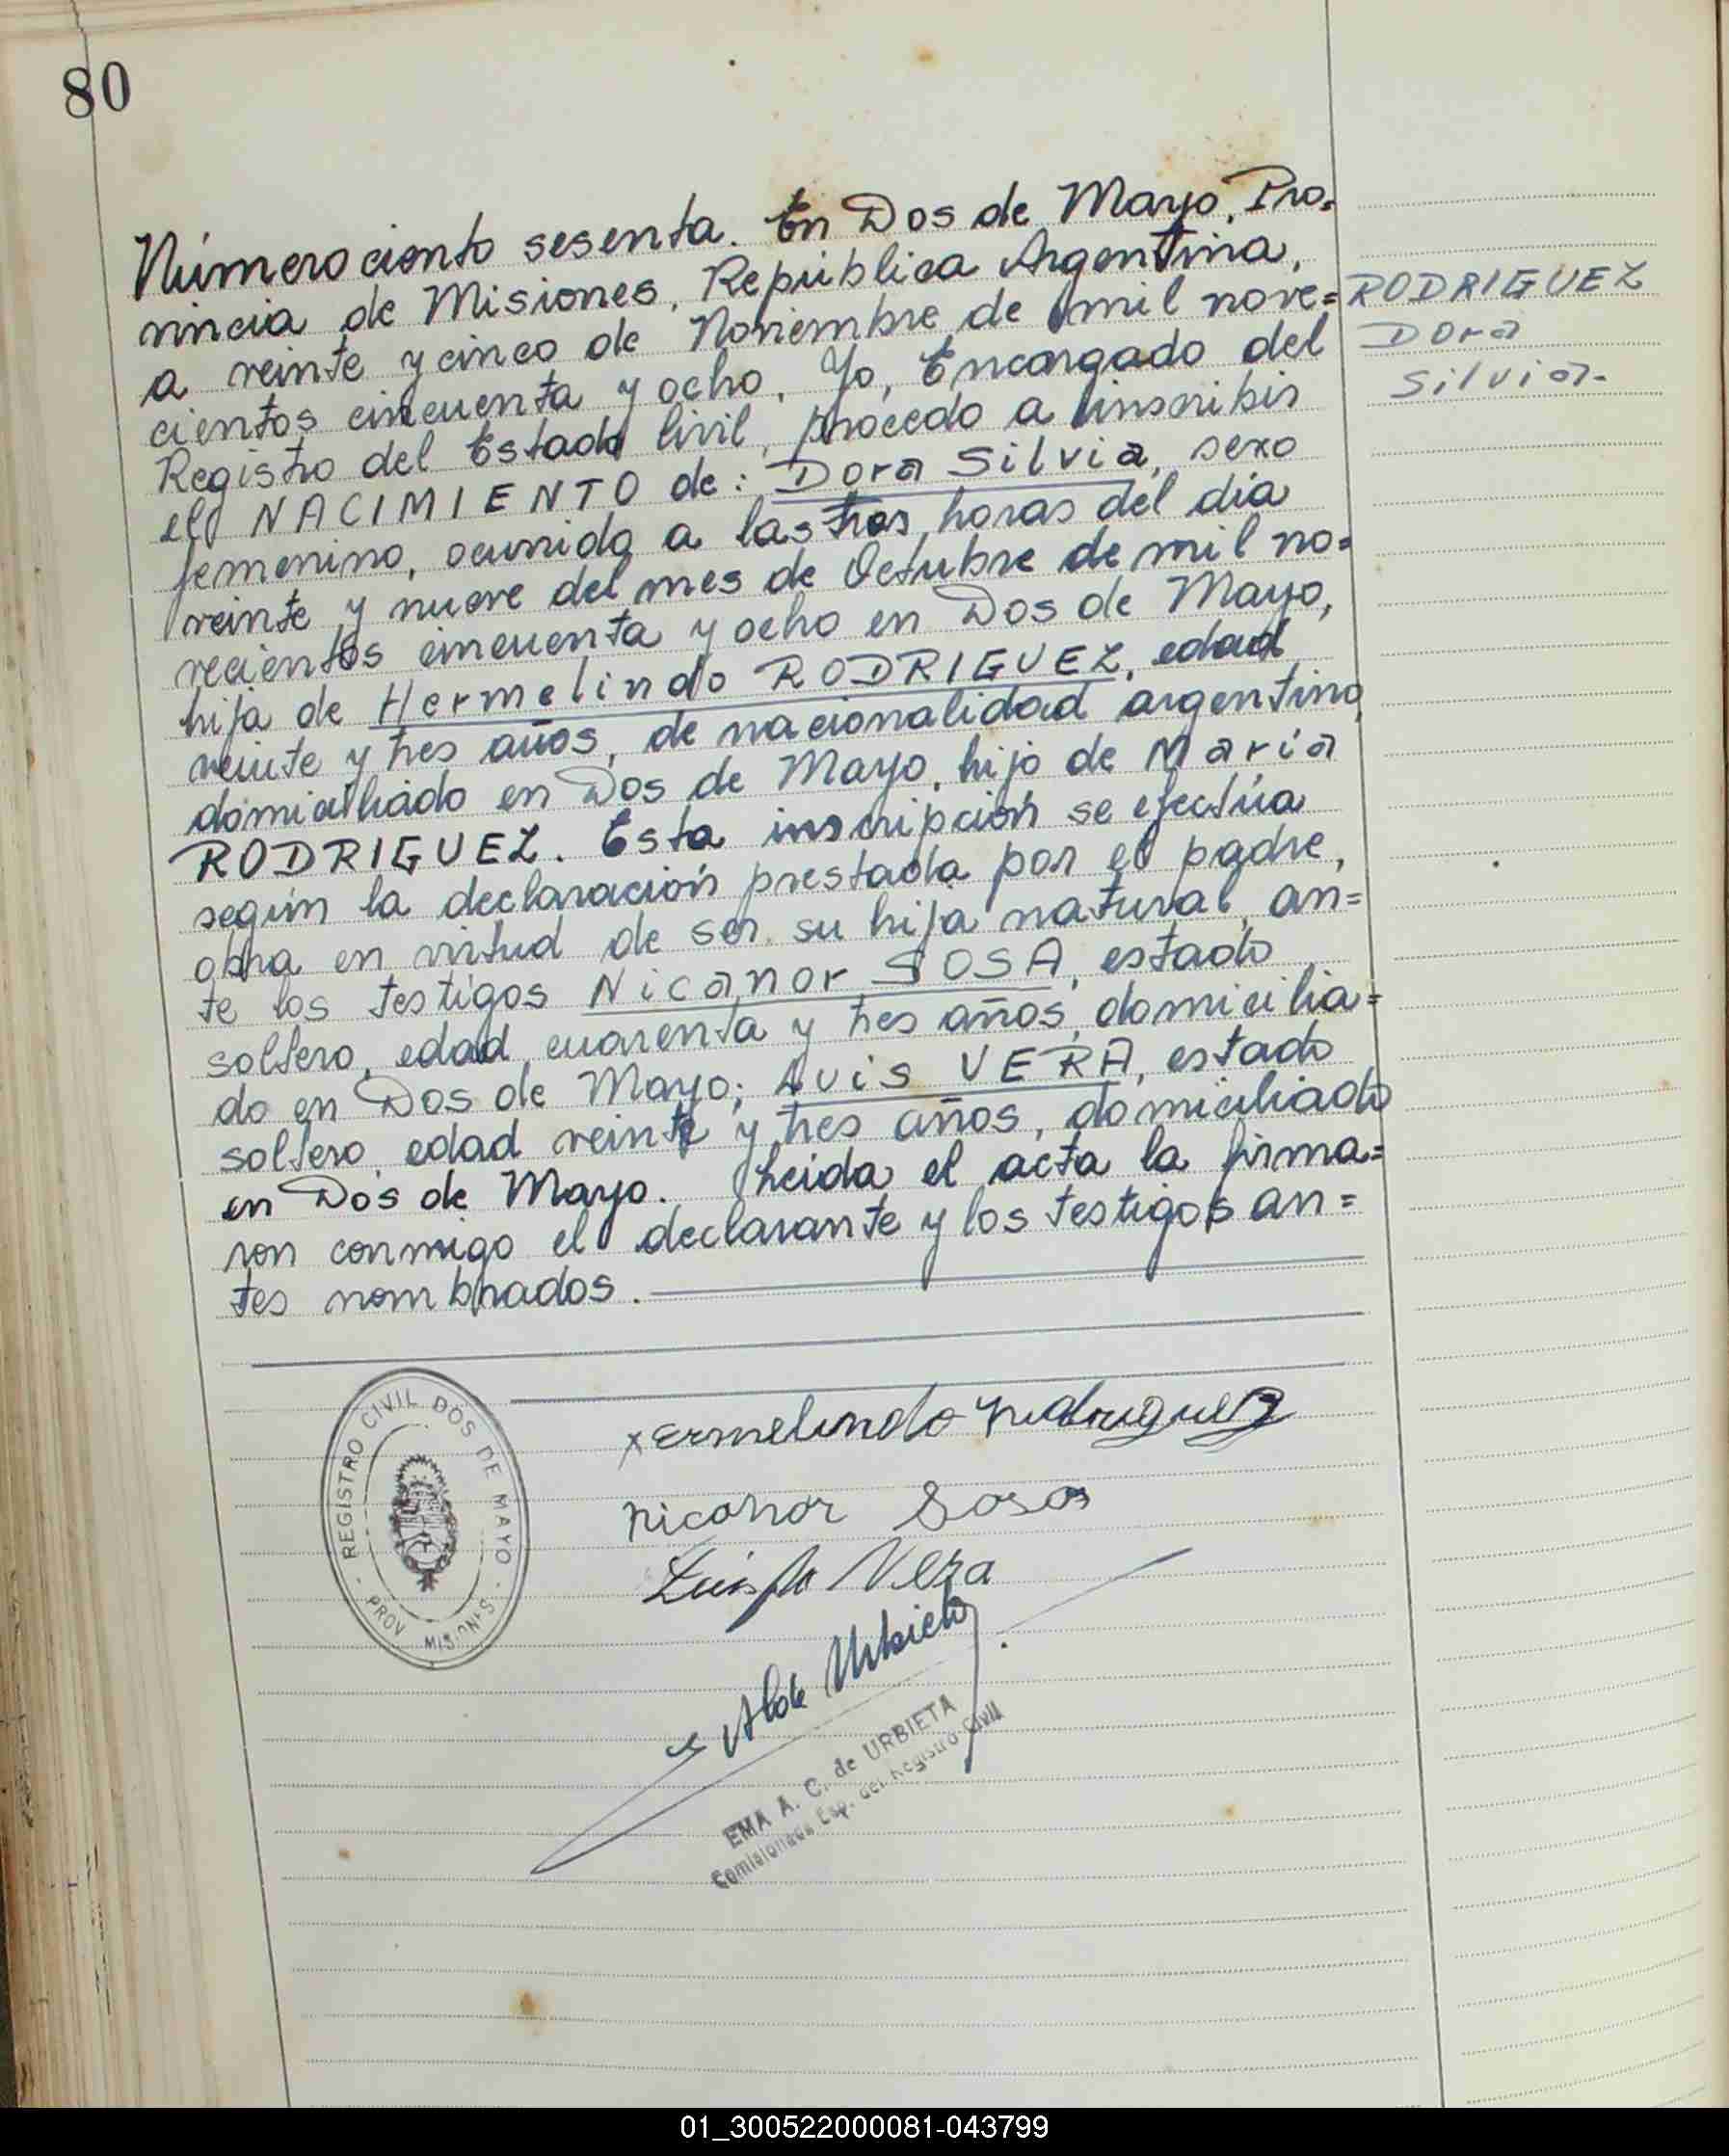 80
Número ciento sesenta. En Dos de Mayo, Pro=
vincia de Misiones, República Argentina,
a veinte y cinco de Noviembre de mil nove=
cientos cincuenta y ocho, Yo, Encargado del
Registro del Estado Civil, procedo a inscribir
el NACIMIENTO de: Dora Silvia, sexo
femenino, ocurrido a las tres horas del día
veinte y nueve del mes de Octubre de mil no=
vecientos cincuenta y ocho en Dos de Mayo,
hija de Hermelindo RODRIGUEZ, edad
veinte y tres años, de nacionalidad argentino,
domiciliado en Dos de Mayo, hijo de María
RODRIGUEZ. Esta inscripción se efectúa
según la declaración prestada por el padre,
obra en virtud de ser su hija natural, an=
te los testigos Nicanor SOSA, estado
soltero, edad cuarenta y tres años, domicilia=
do en Dos de Mayo; Luis VERA, estado
soltero, edad veinte y tres años, domiciliado
en Dos de Mayo. Leida el acta la firma=
ron conmigo el declarante y los testigos an=
tes nombrados.
RODRIGUEZ
Dora
Silvia.-
x Ermelindo rodriguez
nicanor Sosa
Vera
REGISTRO CIVIL DOS DE MAYO - PROV. MISIONES
Urbieta
EMA A. C. de URBIETA
Comisionada Esp. del Registro Civil
01_300522000081-043799